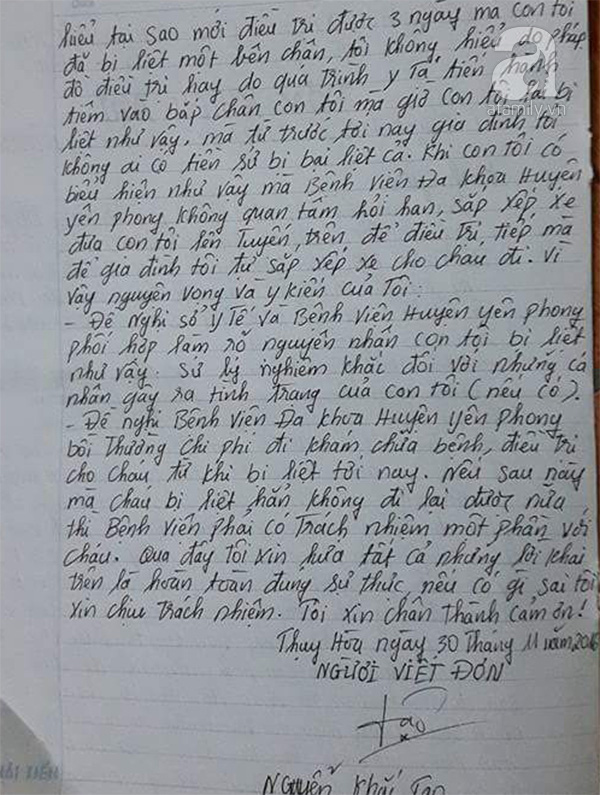 hiểu tại sao mới điều trị được 3 ngày mà con tôi
đã bị liệt một bên chân, tôi không hiểu do pháp
đồ điều trị hay do quá trình y tá tiến hành
tiêm vào bắp chân con tôi mà giờ con tôi lại bị
liệt như vậy, mà từ trước tới nay gia đình tôi
không ai có tiền sử bị bại liệt cả. Khi con tôi có
biểu hiện như vậy mà Bệnh Viện Đa khoa Huyện
yên phong không quan tâm hỏi han, sắp xếp xe
đưa con tôi lên Tuyến trên để điều trị tiếp mà
để gia đình tôi tự sắp xếp xe cho cháu đi. Vì
vậy nguyện vọng và ý kiến của Tôi:
- Đề Nghị sở y Tế và Bệnh Viện Huyện yên phong
phối hợp làm rõ nguyên nhân con tôi bị liệt
như vậy. Sử lý nghiêm khắc đối với những cá
nhân gây ra tình trạng của con tôi (nếu có).
- Đề nghị Bệnh Viện Đa khoa Huyện yên phong
bồi Thường chi phí đi khám, chữa bệnh, điều trị
cho cháu từ khi bị liệt tới nay. Nếu sau này
mà cháu bị liệt hẳn không đi lại được nữa
thì Bệnh Viện phải có Trách nhiệm một phần với
cháu. Qua đây tôi xin hứa tất cả những lời khai
trên là hoàn toàn đúng sự thực, nếu có gì sai tôi
xin chịu trách nhiệm. Tôi xin chân thành cảm ơn!
Thụy Hòa ngày 30 Tháng 11 năm 2016
NGƯỜI VIẾT ĐƠN
Tạo
Nguyễn Khắc Tạo
afamily.vn
HẢI TIẾN